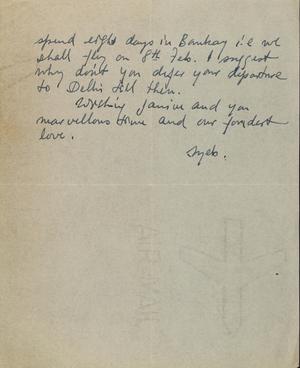 spend eight days in Bombay i.e we
shall fly on 8th Feb. I suggest
why don't you defer your departure
to Delhi till then.
Wishing Janine and you
marvellous time and our fondest
love.
AIR MAIL